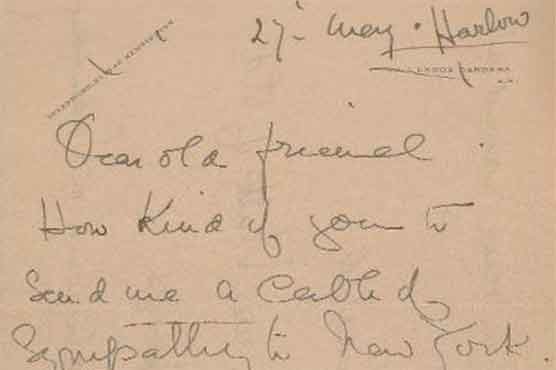 27th May · Harlow
GARDENS
Dear old friend.
How kind of you to
send me a cable of
sympathy to New York.